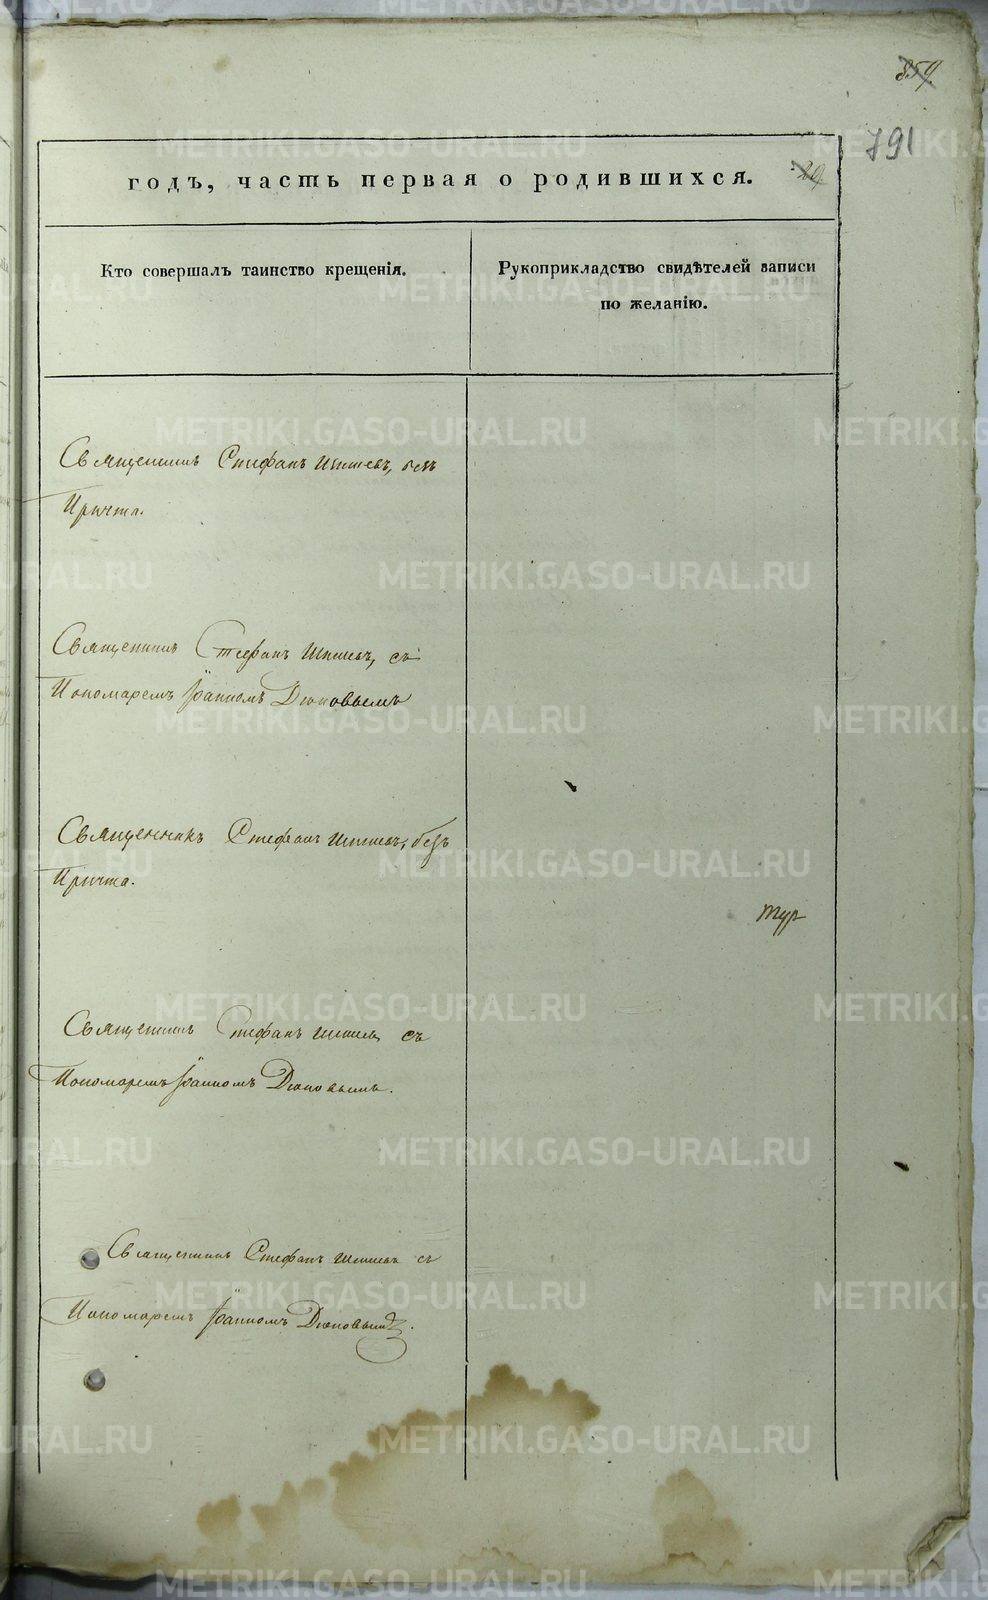 859
791
годъ, часть первая о родившихся.
29
Кто совершалъ таинство крещенія.
Рукоприкладство свидѣтелей записи
по желанію.
Священникъ Стефанъ безъ
Причта.
Священникъ Стефанъ съ
Пономаремъ Іоанномъ Дюповымъ
Священникъ Стефанъ безъ
Причта.
тур
Священникъ Стефанъ съ
Пономаремъ Іоанномъ Дюповымъ.
Священникъ Стефанъ съ
Пономаремъ Іоанномъ Дюповымъ.
METRIKI.GASO-URAL.RU